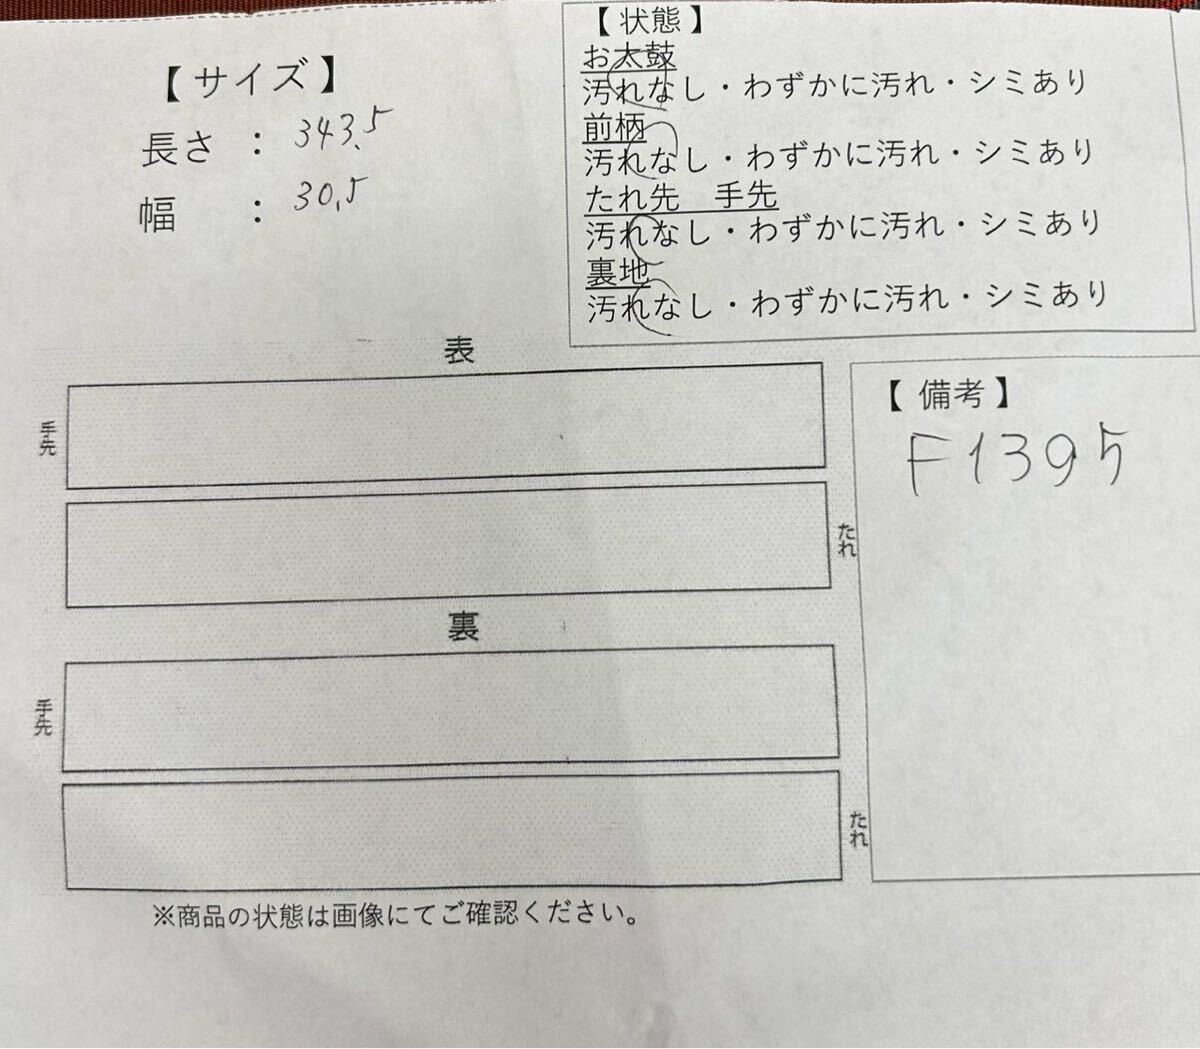 【 サイズ 】
長さ ： 343.5
幅 ： 30.5
【 状態 】
お太鼓
汚れなし・わずかに汚れ・シミあり
前柄
汚れなし・わずかに汚れ・シミあり
たれ先　手先
汚れなし・わずかに汚れ・シミあり
裏地
汚れなし・わずかに汚れ・シミあり
表
手先
たれ
裏
手先
たれ
※商品の状態は画像にてご確認ください。
【 備考 】
F1395